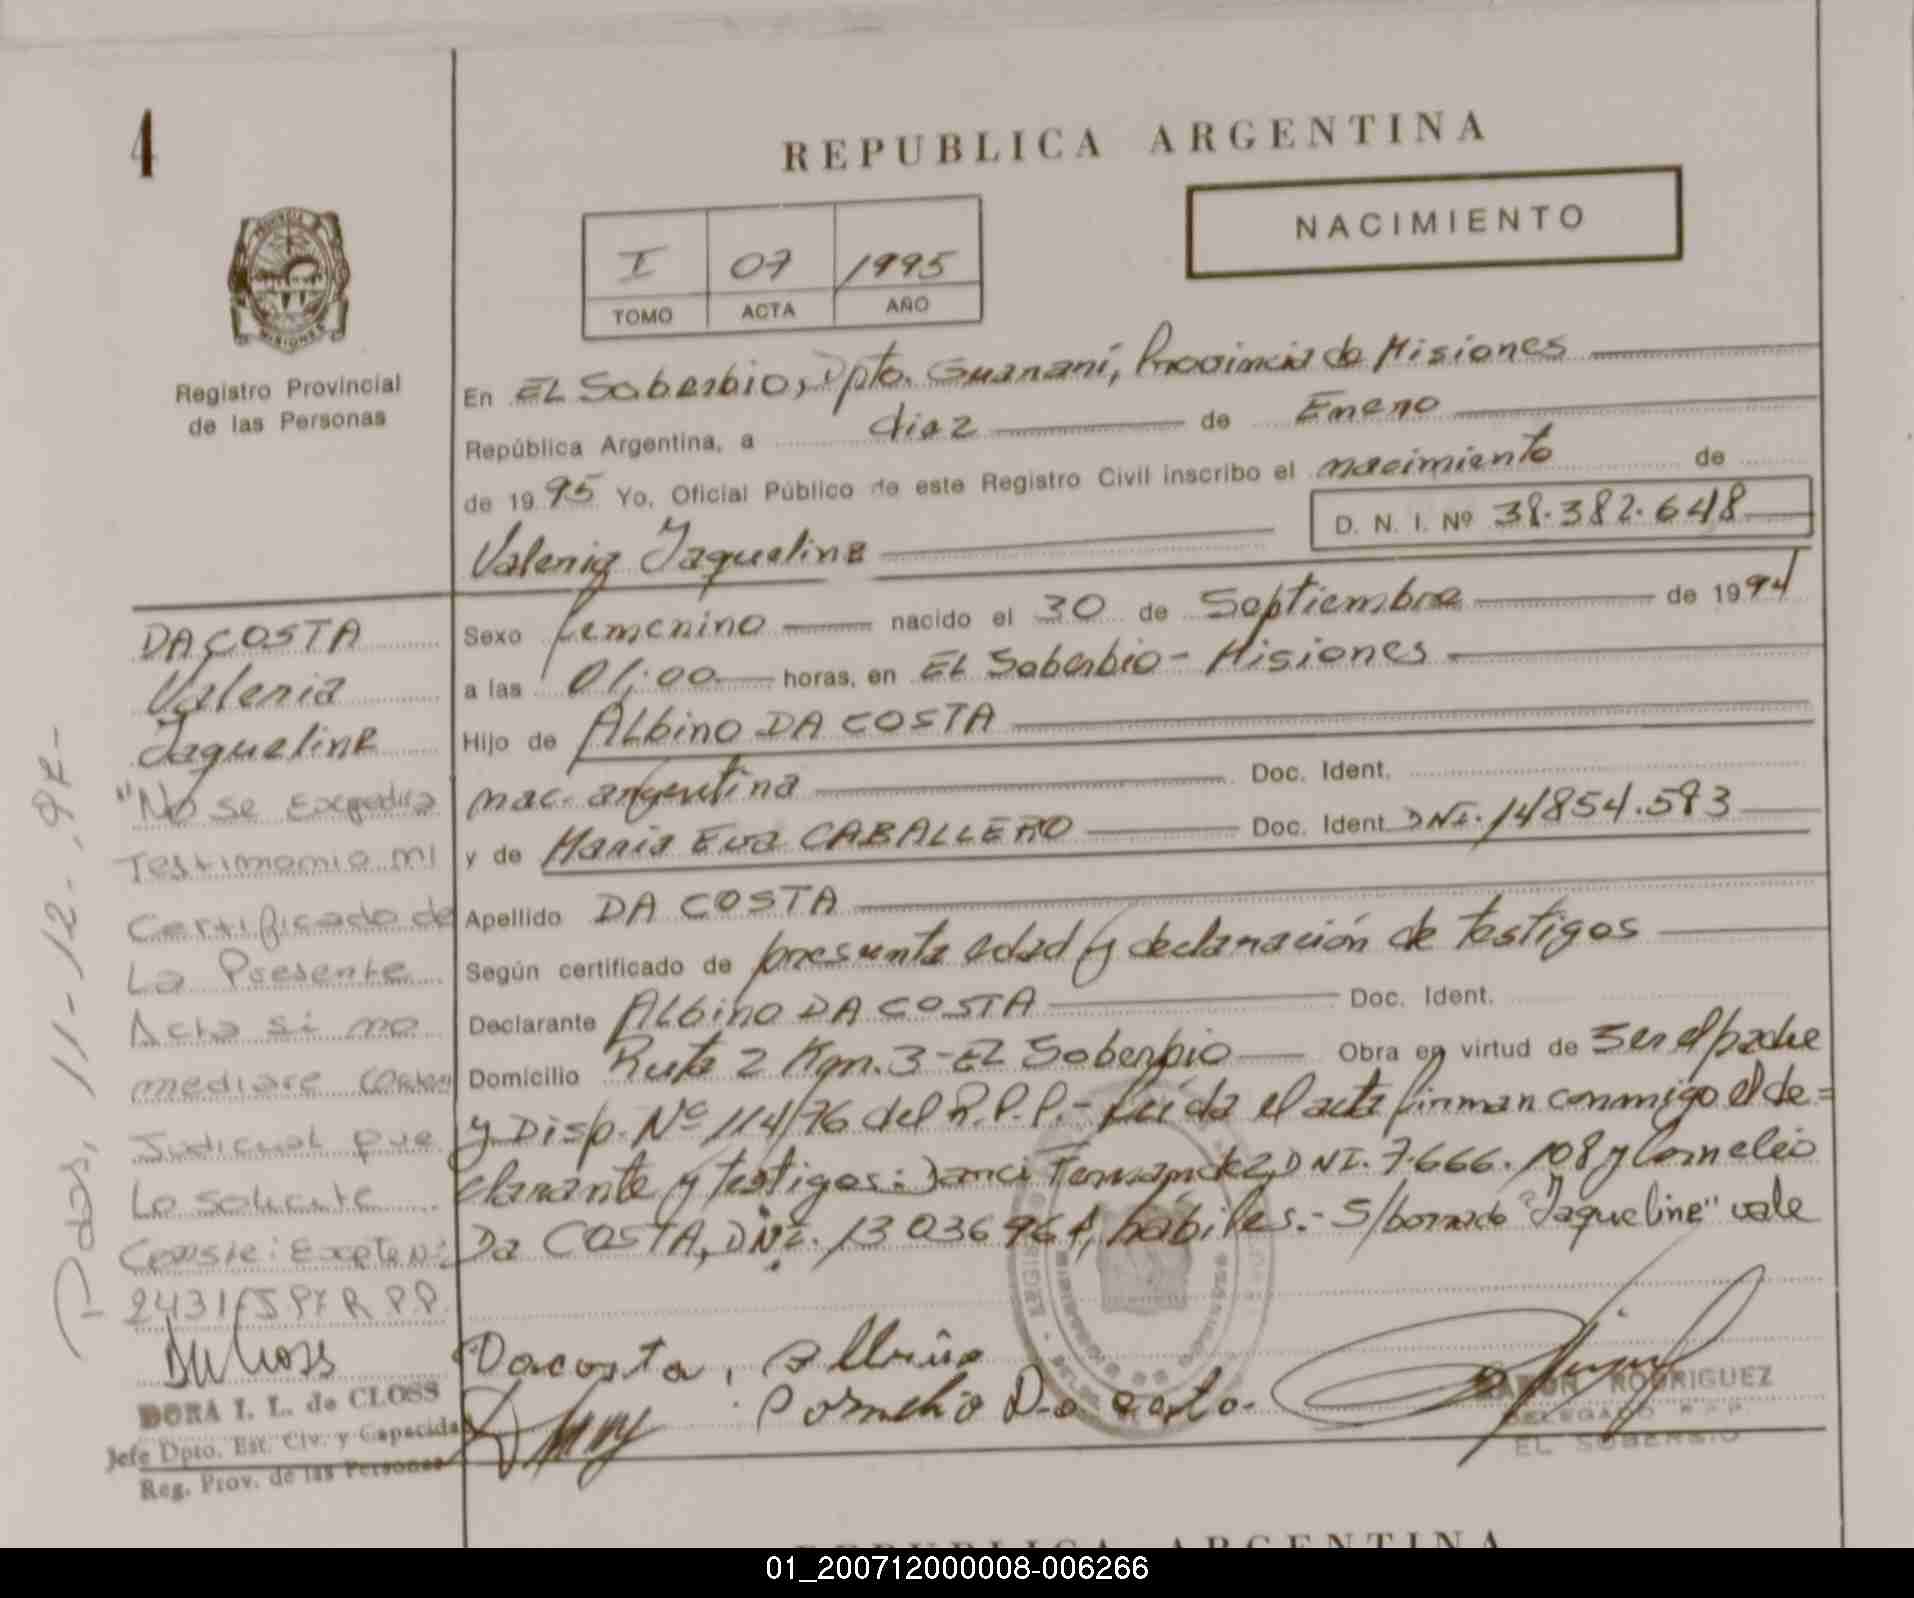 4
REPUBLICA ARGENTINA
NACIMIENTO
I 07 1995
TOMO ACTA AÑO
PROVINCIA
MISIONES
Registro Provincial
de las Personas
En EL Soberbio, Dpto. Guaraní, Provincia de Misiones
República Argentina, a diez de Enero
de 1995 Yo, Oficial Público de este Registro Civil inscribo el nacimiento de
D. N. I. Nº 38.382.648
Valeria Jaqueline
Sexo femenino nacido el 30 de Septiembre de 1994
a las 01:00 horas, en EL Soberbio - Misiones
Hijo de Albino DA COSTA
nac. argentina Doc. Ident.
y de Maria Eva CABALLERO Doc. Ident DNI. 14854.593
Apellido DA COSTA
Según certificado de presunta edad y declaración de testigos
Declarante Albino DA COSTA Doc. Ident.
Domicilio Ruta 2 Km. 3 - EL Soberbio Obra en virtud de ser el padre
y Disp. Nº 114/76 del R.P.P.- Leída el acta firman conmigo el de=
clarante y testigos: Darci Fernandez, DNI. 7.666.108 y Cornelio
Da COSTA, DNI. 13 036 964, hábiles.- S/borrado "Jaqueline" vale
DA COSTA
Valeria
Jaqueline
"No se Expedira
Testimonio ni
Certificado de
La Presente
Acta si no
mediare Orden
Judicial que
Lo solicite
Conste: Expte Nº
2431/S PY R P P.
Pdas, 11-12-98-
DORA I. L. de CLOSS
Jefe Dpto. Est. Civ. y Capacidad
Reg. Prov. de las Personas
Dacosta, Albino
Cornelio Da Costa
RODRIGUEZ
DELEGADO R.P.P.
EL SOBERBIO
REPUBLICA ARGENTINA
01_200712000008-006266